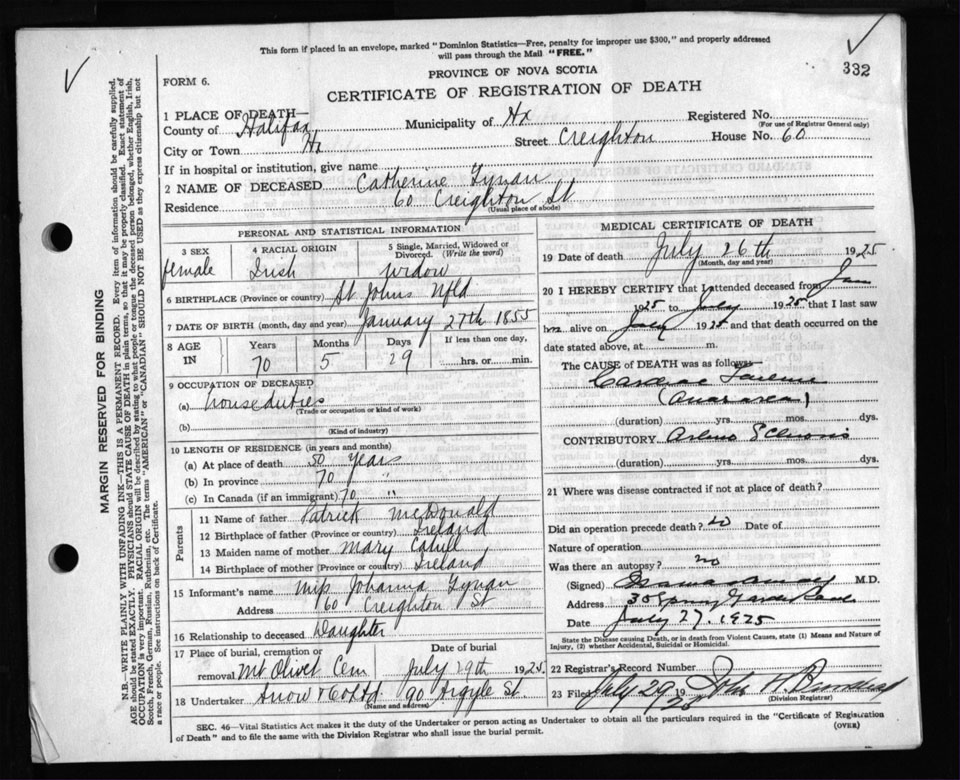 This form if placed in an envelope, marked "Dominion Statistics—Free, penalty for improper use $300," and properly addressed
will pass through the Mail "FREE."
332
FORM 6.
PROVINCE OF NOVA SCOTIA
CERTIFICATE OF REGISTRATION OF DEATH
1 PLACE OF DEATH—
County of Halifax Municipality of Hx Registered No.
(For use of Registrar General only)
City or Town Hx Street Creighton House No. 60
If in hospital or institution, give name
2 NAME OF DECEASED Catherine Lynan
Residence 60 Creighton St
(Usual place of abode)
PERSONAL AND STATISTICAL INFORMATION
3 SEX 4 RACIAL ORIGIN 5 Single, Married, Widowed or
Divorced. (Write the word)
female Irish widow
6 BIRTHPLACE (Province or country) St Johns Nfld
7 DATE OF BIRTH (month, day and year) January 27th 1855
8 AGE IN Years Months Days If less than one day,
70 5 29 hrs. or min.
9 OCCUPATION OF DECEASED
(a) housduties
(Trade or occupation or kind of work)
(b)
(Kind of industry)
10 LENGTH OF RESIDENCE (in years and months)
(a) At place of death 50 years
(b) In province 70 "
(c) In Canada (if an immigrant) 70 "
Parents
11 Name of father Patrick McDonald
12 Birthplace of father (Province or country) Ireland
13 Maiden name of mother Mary Cahill
14 Birthplace of mother (Province or country) Ireland
15 Informant's name Miss Johanna Lynan
Address 60 Creighton St
16 Relationship to deceased Daughter
17 Place of burial, cremation or Date of burial
removal Mt Olivet Cem July 29th 1925
18 Undertaker Snow & Co Ltd 90 Argyle St
(Name and address)
MEDICAL CERTIFICATE OF DEATH
19 Date of death July 26th 1925
(Month, day and year)
20 I HEREBY CERTIFY that I attended deceased from Jan
1925 to July 1925 that I last saw
her alive on July 1925 and that death occurred on the
date stated above, at m.
The CAUSE OF DEATH was as follows:
Cardiac Failure
(Anasarca)
(duration) yrs. mos. dys.
CONTRIBUTORY Arterio Sclerosis
(duration) yrs. mos. dys.
21 Where was disease contracted if not at place of death?
Did an operation precede death? no Date of
Nature of operation
Was there an autopsy? no
(Signed) M.D.
Address 30 Spring Garden Road
Date July 27, 1925
State the Disease causing Death, or in death from Violent Causes, state (1) Means and Nature of
Injury, (2) whether Accidental, Suicidal or Homicidal.
22 Registrar's Record Number
23 Filed July 29 1925 John A.
(Division Registrar)
SEC. 46—Vital Statistics Act makes it the duty of the Undertaker or person acting as Undertaker to obtain all the particulars required in the "Certificate of Registration
of Death" and to file the same with the Division Registrar who shall issue the burial permit.
(OVER)
MARGIN RESERVED FOR BINDING
N.B.—WRITE PLAINLY WITH UNFADING INK—THIS IS A PERMANENT RECORD. Every item of information should be carefully supplied.
AGE should be stated EXACTLY. PHYSICIANS should STATE CAUSE OF DEATH in plain terms, so that it may be properly classified. Exact statement of
OCCUPATION is very important. RACIAL ORIGIN will be described by stating to what people or tongue the deceased person belonged, whether English, Irish,
Scotch, French, German, Russian, Ruthenian, etc. The terms "AMERICAN" or "CANADIAN" SHOULD NOT BE USED as they express citizenship but not
a race or people. See instructions on back of Certificate.